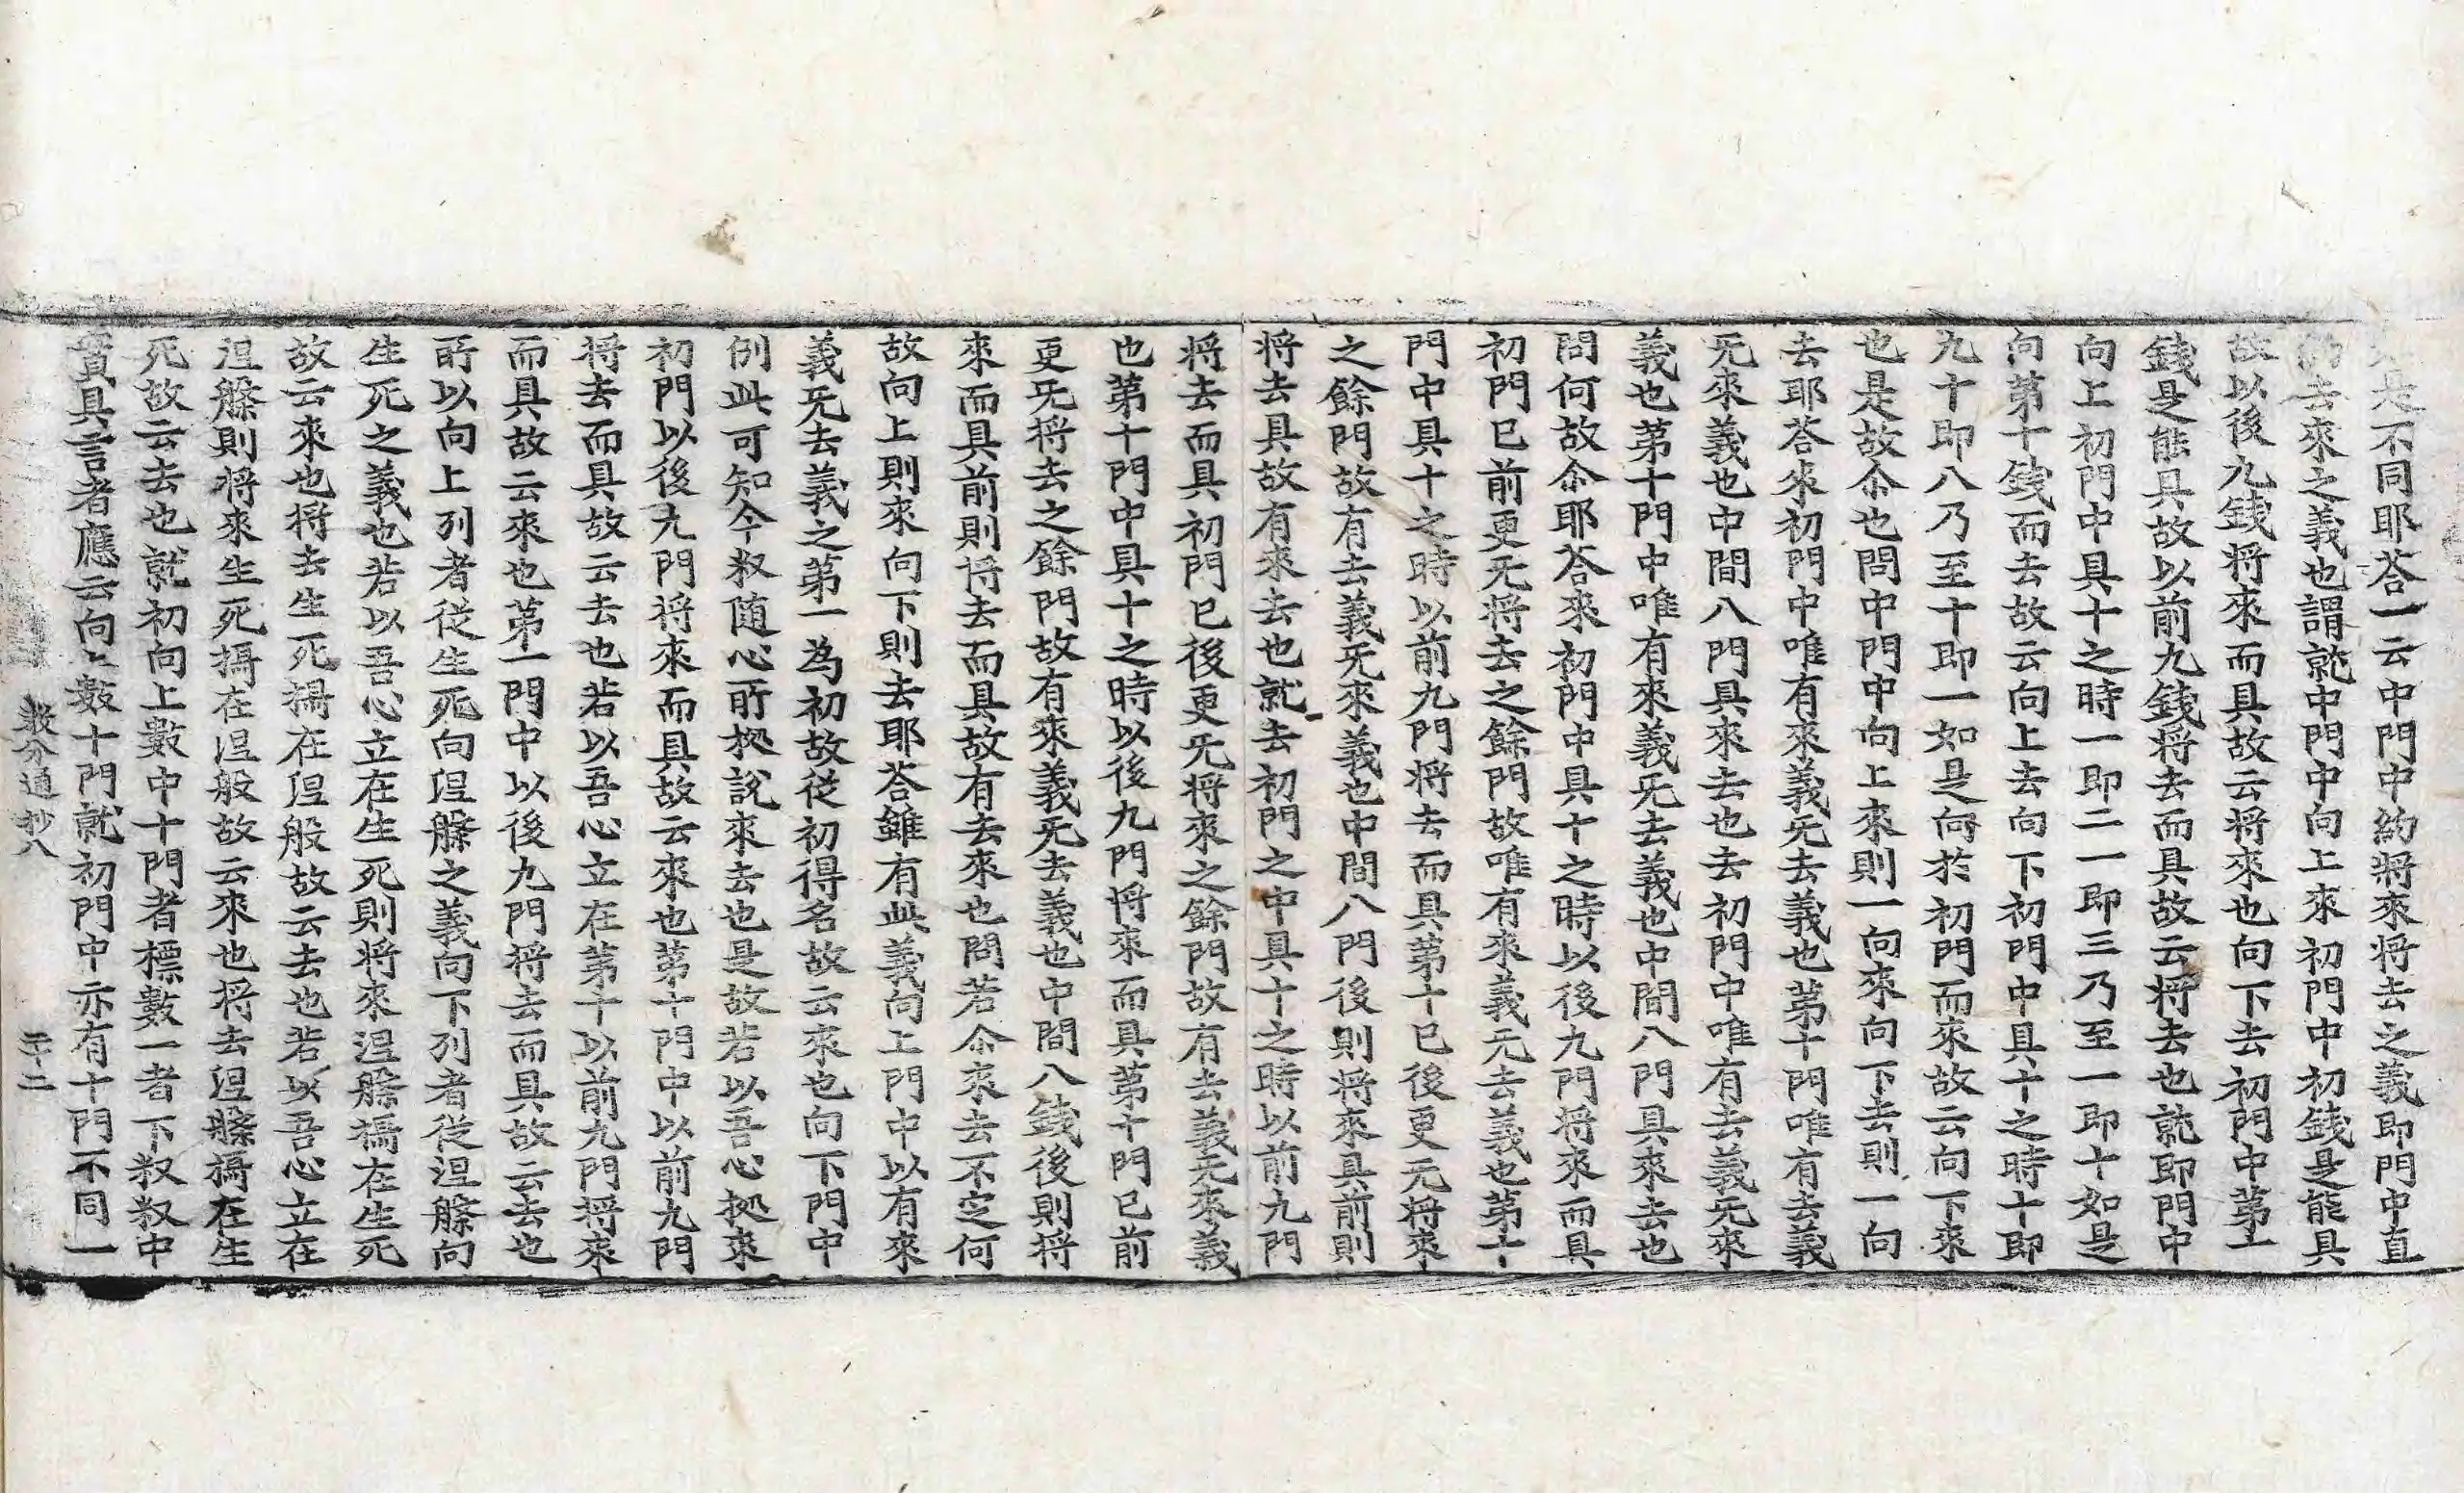 不同耶荅一云中門中約將來將去之義即門中直
去來之義也謂就中門中向上來初門中初錢是能具
故以後九錢將來而具故云將來也向下去初門中第十
錢是能具故以前九錢將去而具故云將去也就即門中
向上初門中具十之時一即二一即三乃至一即十如是
向第十錢而去故云向上去向下初門中具十之時十即
九十即八乃至十即一如是向於初門而來故云向下來
也是故尒也問中門中向上來則一向來向下去則一向
去耶荅來初門中唯有來義旡去義也第十門唯有去義
旡來義也中間八門具來去也去初門中唯有去義旡來
義也第十門中唯有來義旡去義也中間八門具來去也
問何故尒耶荅來初門中具十之時以後九門將來而具
初門已前更旡將去之餘門故唯有來義旡去義也第十
門中具十之時以前九門將去而具第十已後更旡將來
之餘門故有去義旡來義也中間八門後則將來具前則
將去具故有來去也就去初門之中具十之時以前九門
將去而具初門已後更旡將來之餘門故有去義旡來義
也第十門中具十之時以後九門將來而具第十門已前
更旡將去之餘門故有來義旡去義也中間八錢後則將
來而具前則將去而具故有去來也問若尒來去不定何
故向上則來向下則去耶荅雖有此義向上門中以有來
義旡去義之第一為初故從初得名故云來也向下門中
例此可知今釈随心所㩀說來去也是故若以吾心㩀來
初門以後九門將來而具故云來也第十門中以前九門
將去而具故云去也若以吾心立在第十以前九門將來
而具故云來也第一門中以後九門將去而具故云去也
所以向上列者從生死向涅槃之義向下列者從涅槃向
生死之義也若以吾心立在生死則將來涅槃攝在生死
故云來也將去生死攝在涅般故云去也若以吾心立在
涅槃則將來生死攝在涅般故云來也將去涅槃攝在生
死故云去也就初向上數中十門者標數一者下釈釈中
實具言者應云向上數十門就初門中亦有十門不同一
教分通抄八　二十二